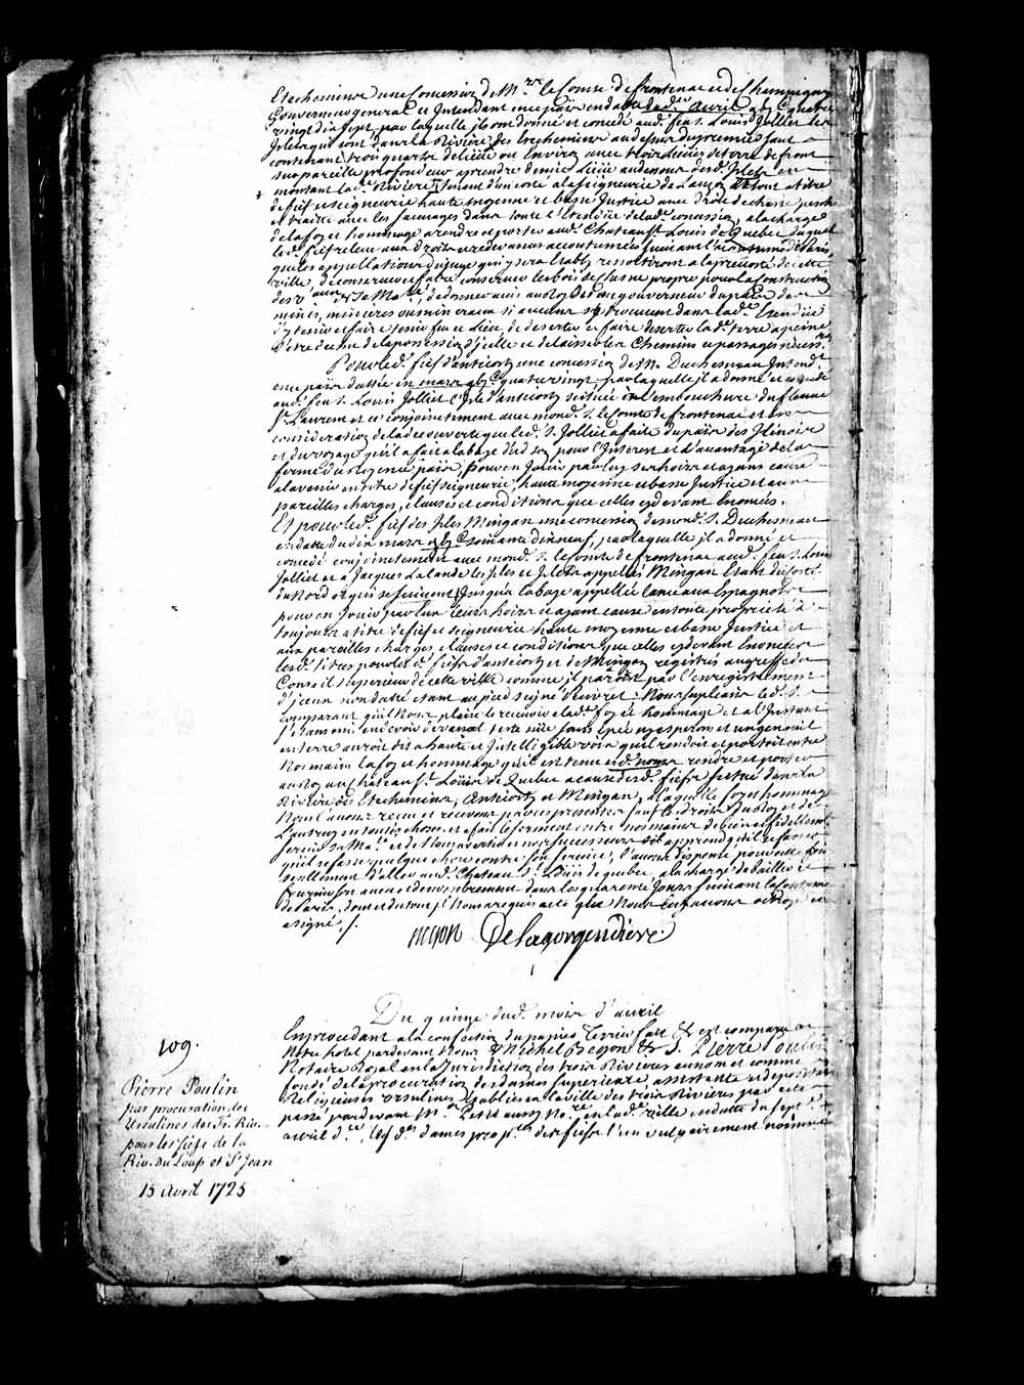 Etechemins une Concession de Mrs le Comte de frontenac et de Champigny
Gouverneur general et Intendant en ce païs en datte du d. avril gbjc quatre
vingt dix sept par laquelle ils ont donné et concedé aud. feu s. Louis Jolliet les
Islets qui sont dans la Riviere des Etechemins au dessus du premier sault
contenant trois quarts de lieüe ou environ avec trois lieües de terre de front
sur pareille profondeur a prendre demie lieüe au dessous desd. Islets en
montant lad. Riviere tenant d'un costé a la seigneurie de Lauzon a titre
de fief et seigneurie haute moyenne et basse Justice avec droit de chasse pesche
et traitte avec les sauvages dans toute l'Etendüe de lad. concession, a la charge
de la foy et hommage a rendre et porter aud. Chateau St Louis de Quebec duquel
led. fief releve aux droits et redevances accoutumées suivant la coutume de Paris
que les appellations du juge qui y sera Etably ressortiront a la prevosté de cette
ville, de conserver et faire conserver les bois de chesne propre pour la construction
des vaux de sa Maté, de donner avis au Roy ou au gouverneur du païs des
mines, minieres ou mineraux si aucuns se trouvent dans lad. Etendüe
d'y tenir et faire tenir feu et lieu, de deserter et faire deserter lad. terre a peine
d'etre dechu de la possession d'icelle et de laisser les Chemins et passages necess.res
Pour led. fief d'anticosty une concession de M. Duchesneau Intend.
en ce païs dattée en mars gbjc quatre vingt, par laquelle il a donné et concedé
aud. feu s. Louis Jolliet l'Isle d'anticosty scituée a l'embouchure du fleuve
St Laurent et ce conjointement avec mond. s. le Comte de frontenac et en
consideration de la decouverte que led. s. Jolliet a faite du païs des Ilinois
et du voyage qu'il a fait a la baye d'hudson pour l'Interest et l'avantage de la
ferme du Roy en ce païs, pour en Jouir par luy ses hoirs et ayans cause
a l'avenir en titre de fief seigneurie, haute moyenne et basse Justice et aux
pareilles charges, clauses et conditions que celles cy devant Enoncées.
Et pour led. fief des Isles Mingan une concession de mond. s. Duchesneau
en datte du dix mars gbjc soixante dix neuf, par laquelle il a donné et
concedé conjointement avec mond. s. le Comte de frontenac aud. feu s. Louis
Jolliet et a Jacques Lalande les Isles et Islets appellés Mingan Etant du costé
du Nord et qui se suivent Jusqu'a la baye appellée l'anse aux Espagnols
pour en Jouir par eux leurs hoirs et ayans cause en toute proprieté a
toujours a titre de fief et seigneurie haute moyenne et basse Justice et
aux pareilles charges, clauses et conditions que celles cy devant Enoncées
lesd. titres pour led. fiefs d'anticosty et de Mingan registrés au greffe du
Conseil superieur de cette ville comme il paroist par l'enregistrement
d'iceux non datté etant au pied signé Peuvret: Nous supliant led. s.
comparant qu'il Nous plaise le recevoir a lad. foy et hommage et a l'Instant
s'etant mis en devoir de vassal teste nüe sans epée ny esperons et un genouil
en terre auroit dit a haute et Intelligible voix qu'il rendoit et portoit entre
Nos mains la foy et hommage qu'il est tenu rendre et porter
au Roy au Chateau St Loüis de Quebec a cause desd. fiefs scitué dans la
Riviere des Etechemins, Anticosty et Mingan, a laquelle foy et hommage
Nous l'avons reçu et recevons par ces presentes sauf les droits du Roy et de
L'autruy en toutes choses et a fait le serment entre nos mains de bien et fidellement
servir sa Maté et de Nous avertir et nos successeurs s'il apprend qu'il se fasse
quelque chose contre son service, l'avons dispensé pour cette fois
seullement d'aller aud. Chateau St Loüis de quebec, a la charge de bailler et
fournir son aveu et denombrement dans les quarante Jours suivant la Coutume
de Paris, dont et du tout il Nous a requis acte que Nous luy avons octroyé et
a signé ./.
Begon Delagorgendiere
Du quinze dud. mois d'avril
En procedant a la confection du papier Terrier fait &c est comparu en
Notre hotel pardevant Nous Michel Begon &c s. Pierre Poulin
Notaire Royal en la Jurisdiction des trois Rivieres au nom et comme
fondé de la procuration des dames superieure, assistante et depositaire
Religieuses Ursulines Etablies en la ville des trois Rivieres par acte
passé pardevant Me Petit aussy Nore en lad. ville en datte du sept
avril d.er, lesd. dames proptres des fiefs l'un vulgairement nommé
109.
Pierre Poulin
par procuration des
Ursulines des Tr. Riv.
pour les fiefs de la
Riv. du Loup et St Jean
15 Avril 1725